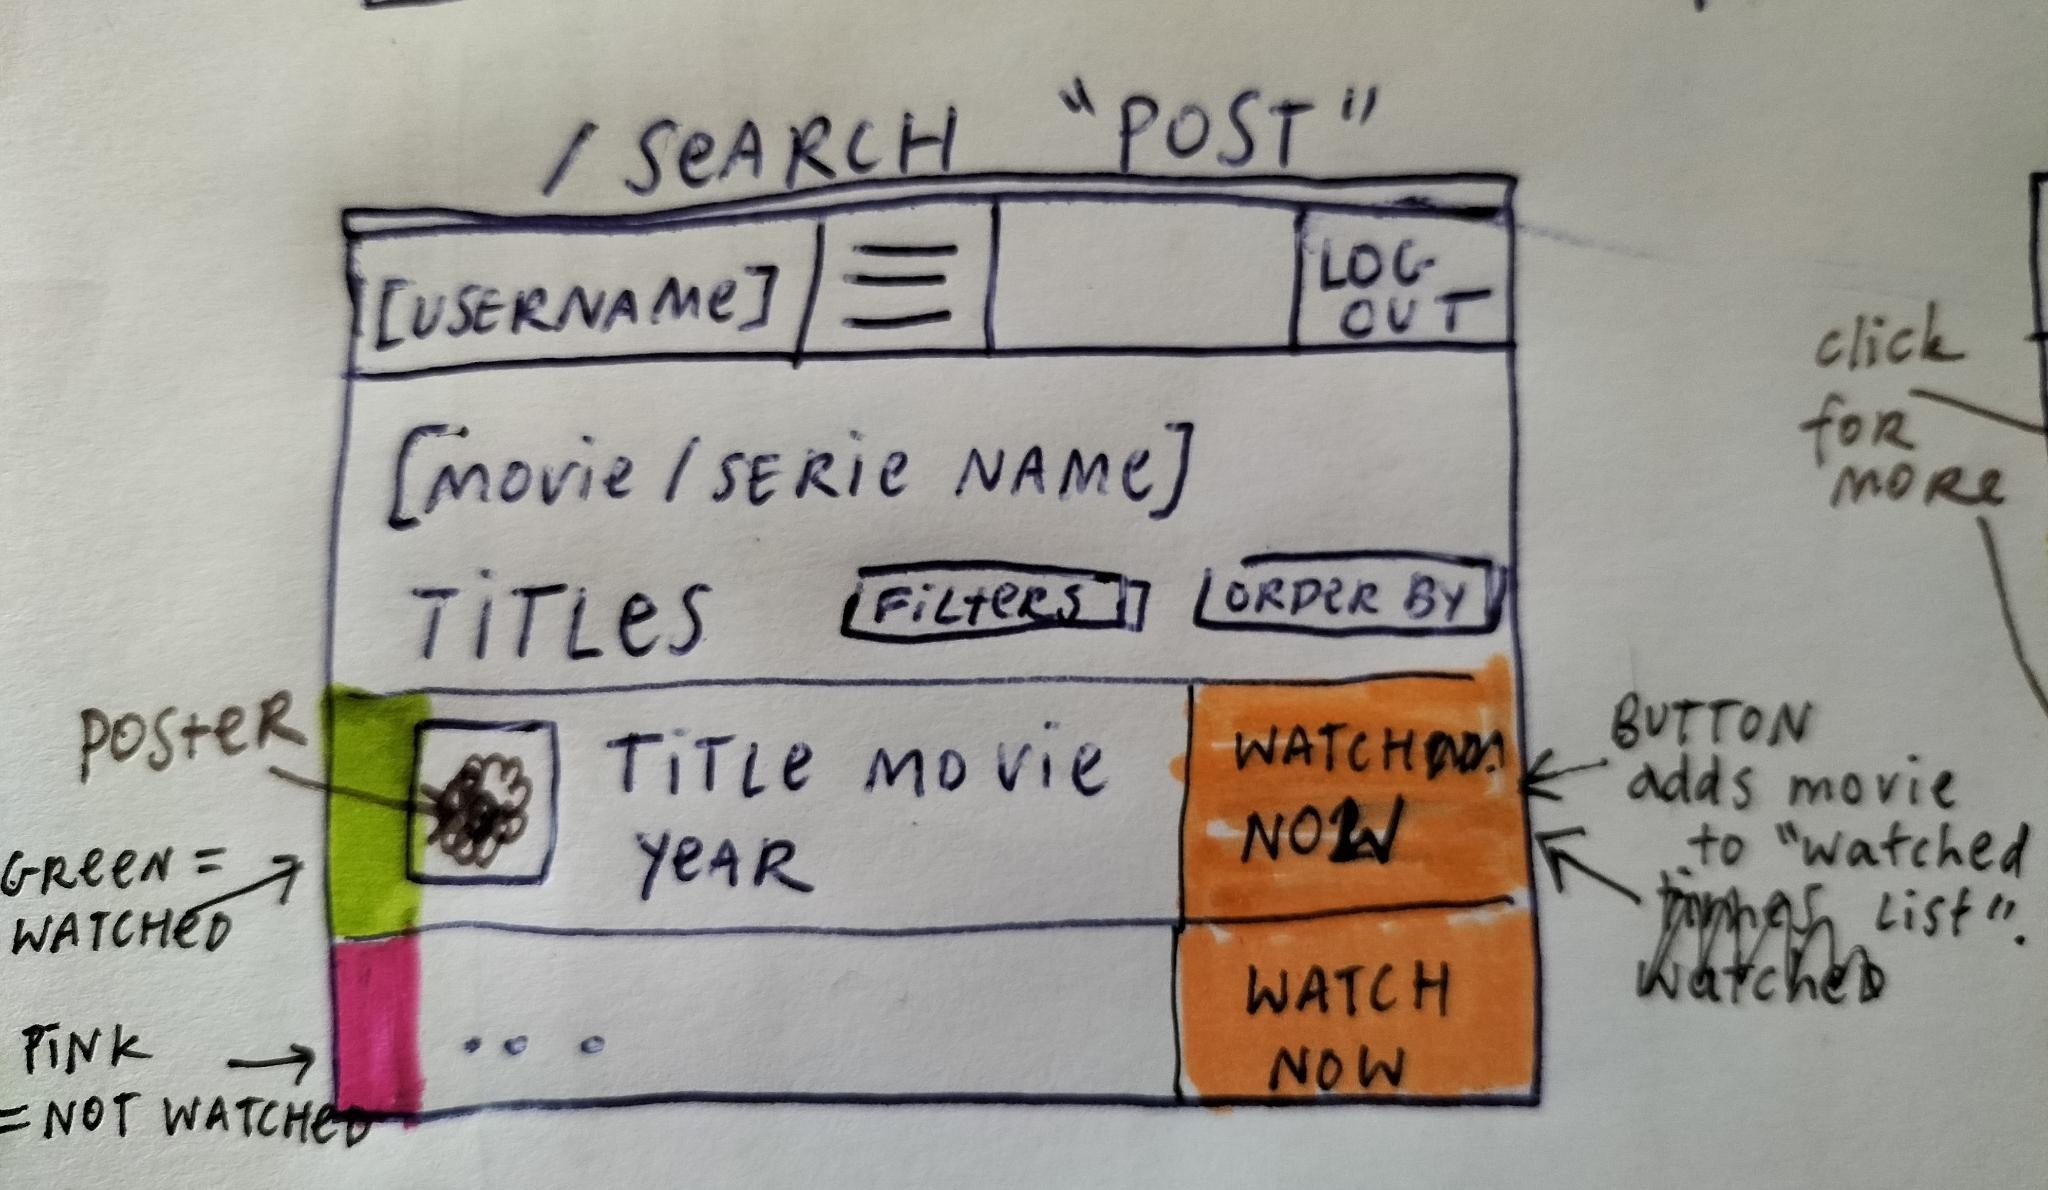 / SeARCH "POST"
[USERNAMe]
LOG-
OUT
[movie / SERie NAMe]
TiTLes
FiLteRS
ORDeR BY
POSteR
TiTLe movie
YeAR
WATCH
NOW
GReeN =
WATCHeD
PiNK
= NOT WATCHeD
...
WATCH
NOW
BUTTON
adds movie
to "watched
List".
watched
click
foR
moRe